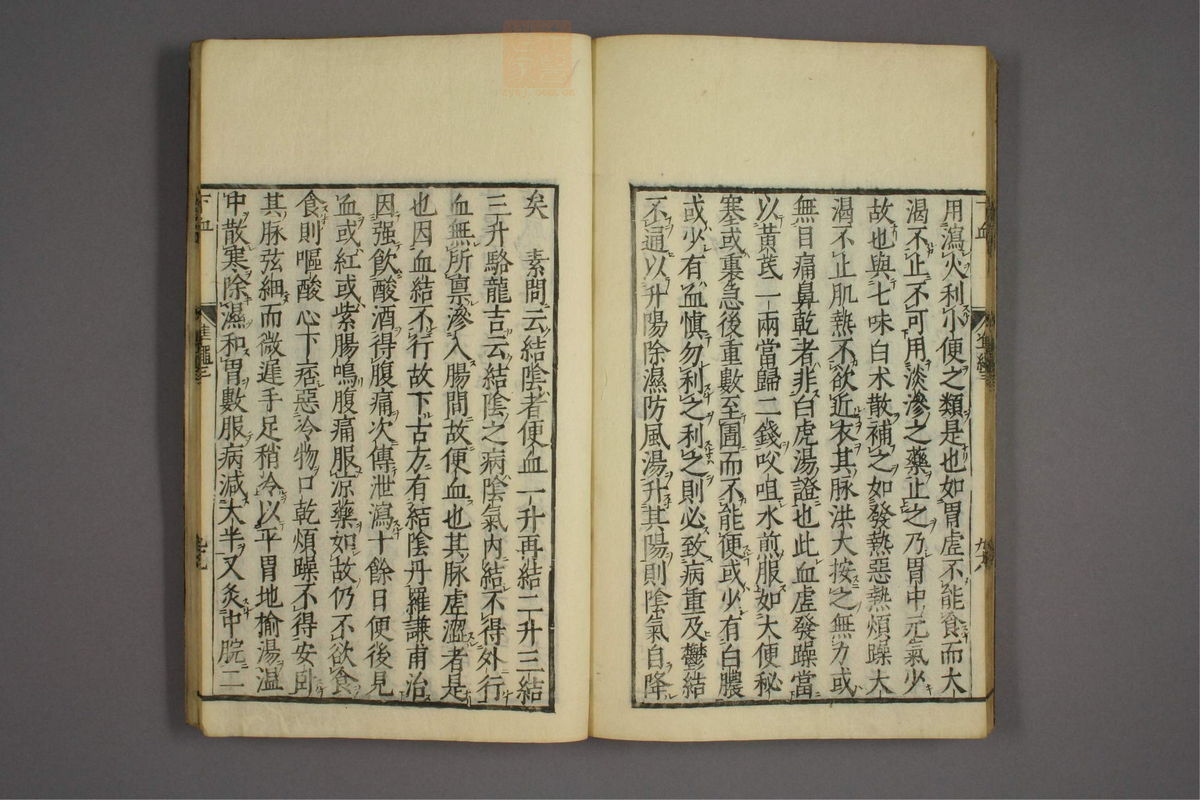 用瀉火利小便之類是也如胃虛不能食而大
渴不止不可用淡滲之藥止之乃胃中元氣少
故也與七味白朮散補之如發熱惡熱煩躁大
渴不止肌熱不欲近衣其脉洪大按之無力或
無目痛鼻乾者非白虎湯證也此血虛發躁當
以黃茋一兩當歸二錢㕮咀水煎服如大便秘
塞或裏急後重數至圊而不能便或少有白膿
或少有血愼勿利之利之則必致病重及鬱結
不通以升陽除濕防風湯升其陽則陰氣自降
矣　素問云結陰者便血一升再結二升三結
三升駱龍吉云結陰之病陰氣內結不得外行
血無所禀滲入腸間故便血也其脉虛澀者是
也因血結不行故下古方有結陰丹羅謙甫治
因强飲酸酒得腹痛次傳泄瀉十餘日便後見
血或紅或紫腸鳴腹痛服凉藥如故仍不欲食
食則嘔酸心下痞惡冷物口乾煩躁不得安卧
其脉弦細而微遲手足稍冷以平胃地榆湯温
中散寒除濕和胃數服病減大半又灸中脘二
下血